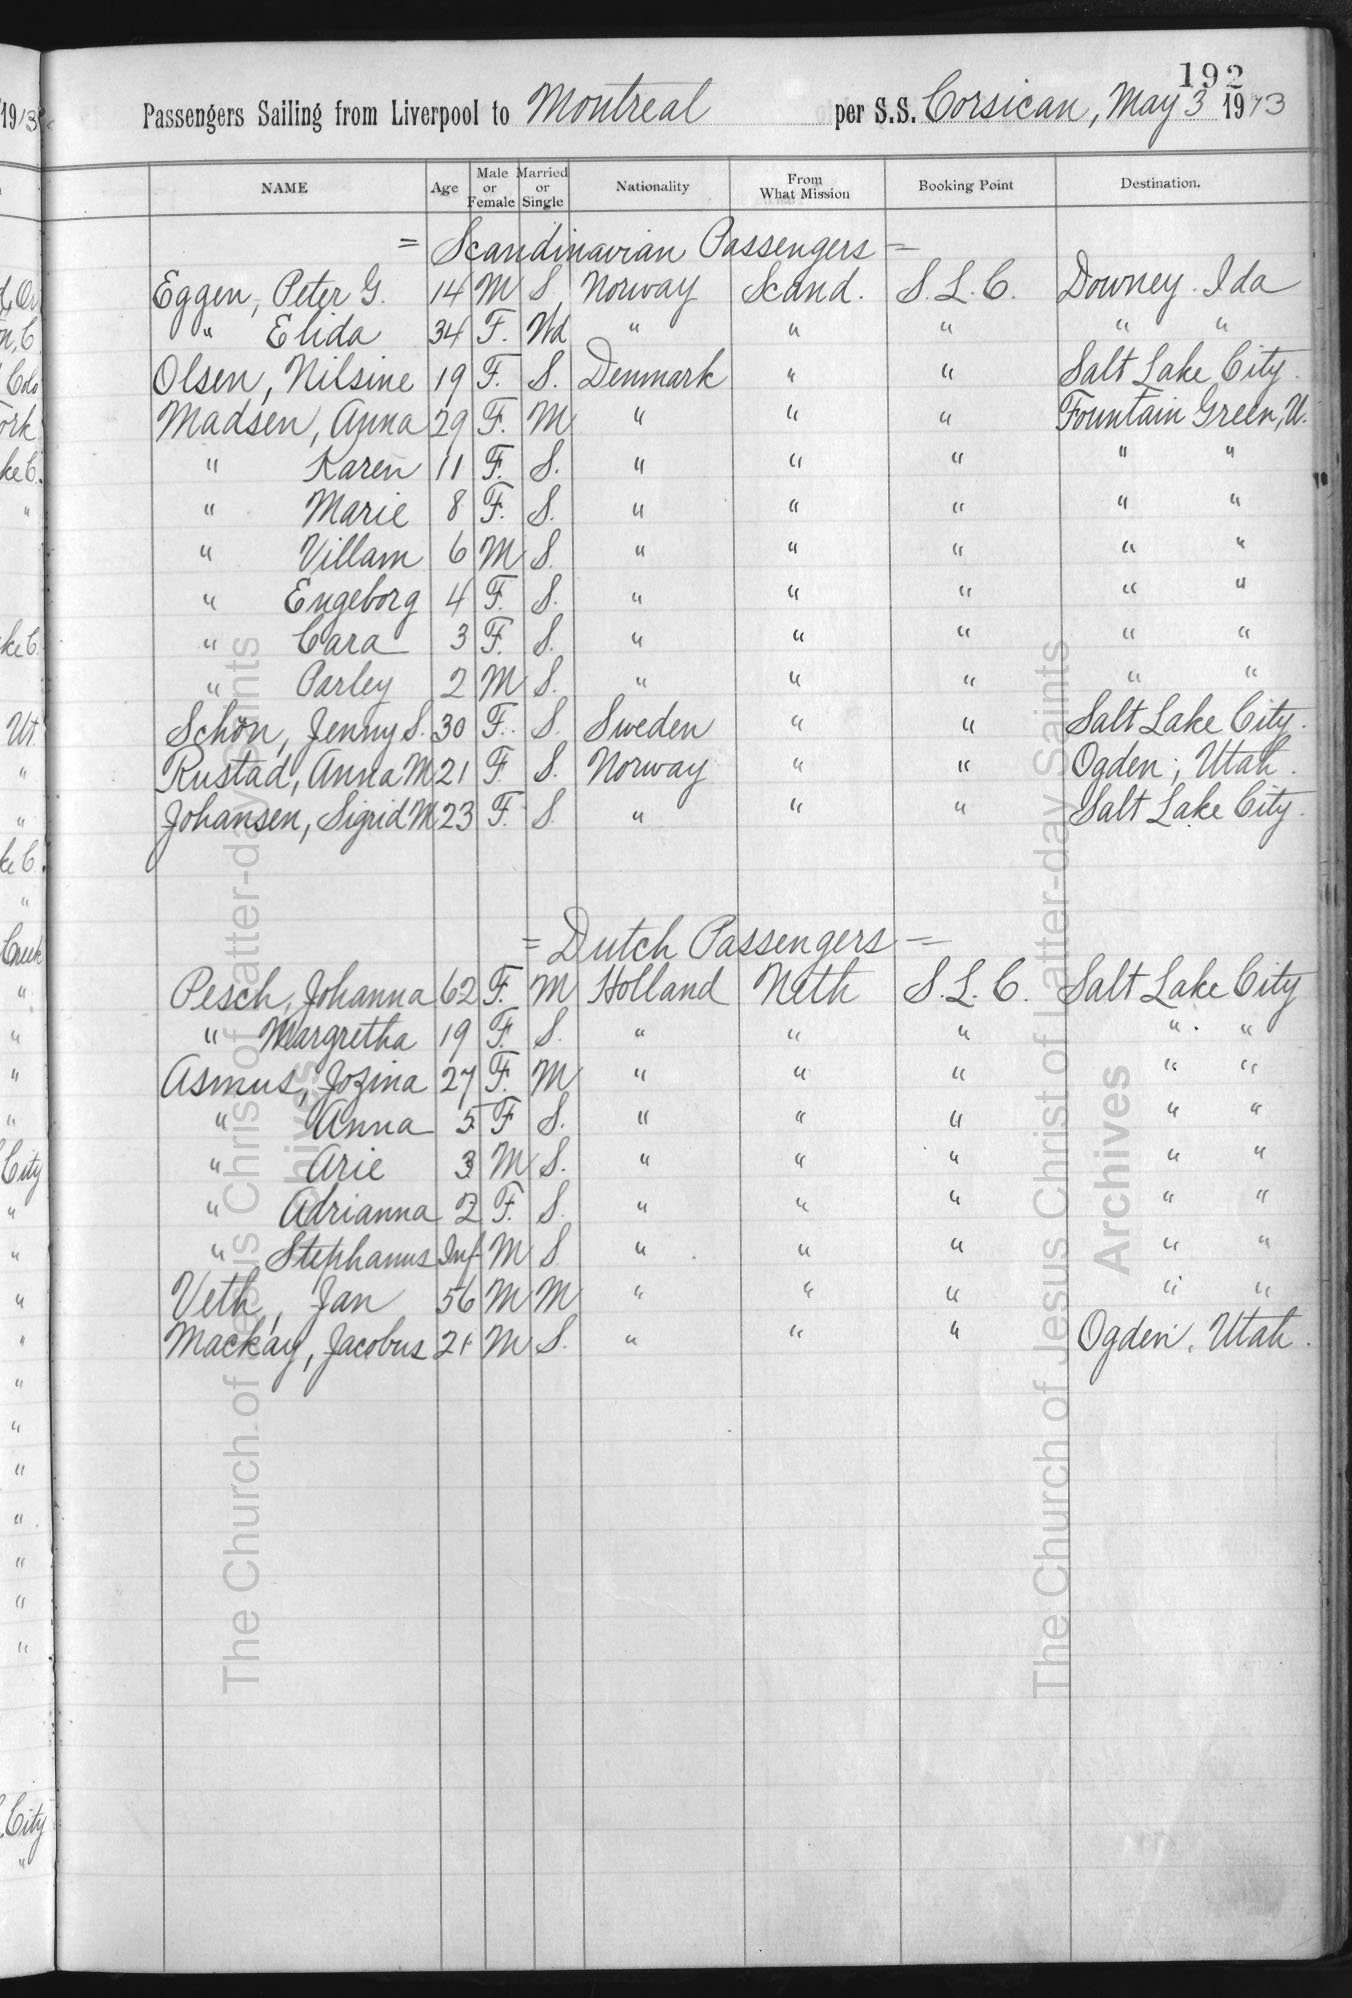 192
Passengers Sailing from Liverpool to Montreal per S.S. Corsican, May 3 1913
NAME Age Male or Female Married or Single Nationality From What Mission Booking Point Destination.
= Scandinavian Passengers =
Eggen, Peter G. 14 M S Norway Scand. S.L.C. Downey Ida
" Elida 34 F. Wd " " " " "
Olsen, Nilsine 19 F. S. Denmark " " Salt Lake City.
Madsen, Anna 29 F. M " " " Fountain Green, U.
" Karen 11 F. S. " " " " "
" Marie 8 F. S. " " " " "
" Villam 6 M S. " " " " "
" Engeborg 4 F. S. " " " " "
" Cara 3 F. S. " " " " "
" Parley 2 M S. " " " " "
Schön, Jenny S. 30 F. S. Sweden " " Salt Lake City.
Rustad, Anna M 21 F S. Norway " " Ogden, Utah.
Johansen, Sigrid M 23 F. S " " " Salt Lake City.
= Dutch Passengers =
Pesch, Johanna 62 F. M Holland Neth S.L.C. Salt Lake City
" Margretha 19 F. S. " " " " "
Asmus, Jozina 27 F. M " " " " "
" Anna 5 F S. " " " " "
" Arie 3 M S. " " " " "
" Adrianna 2 F. S. " " " " "
" Stephanus Inf M S. " " " " "
Veth, Jan 56 M M " " " " "
Mackay, Jacobus 21 M S. " " " Ogden, Utah.
The Church of Jesus Christ of Latter-day Saints
Archives
The Church of Jesus Christ of Latter-day Saints
Archives